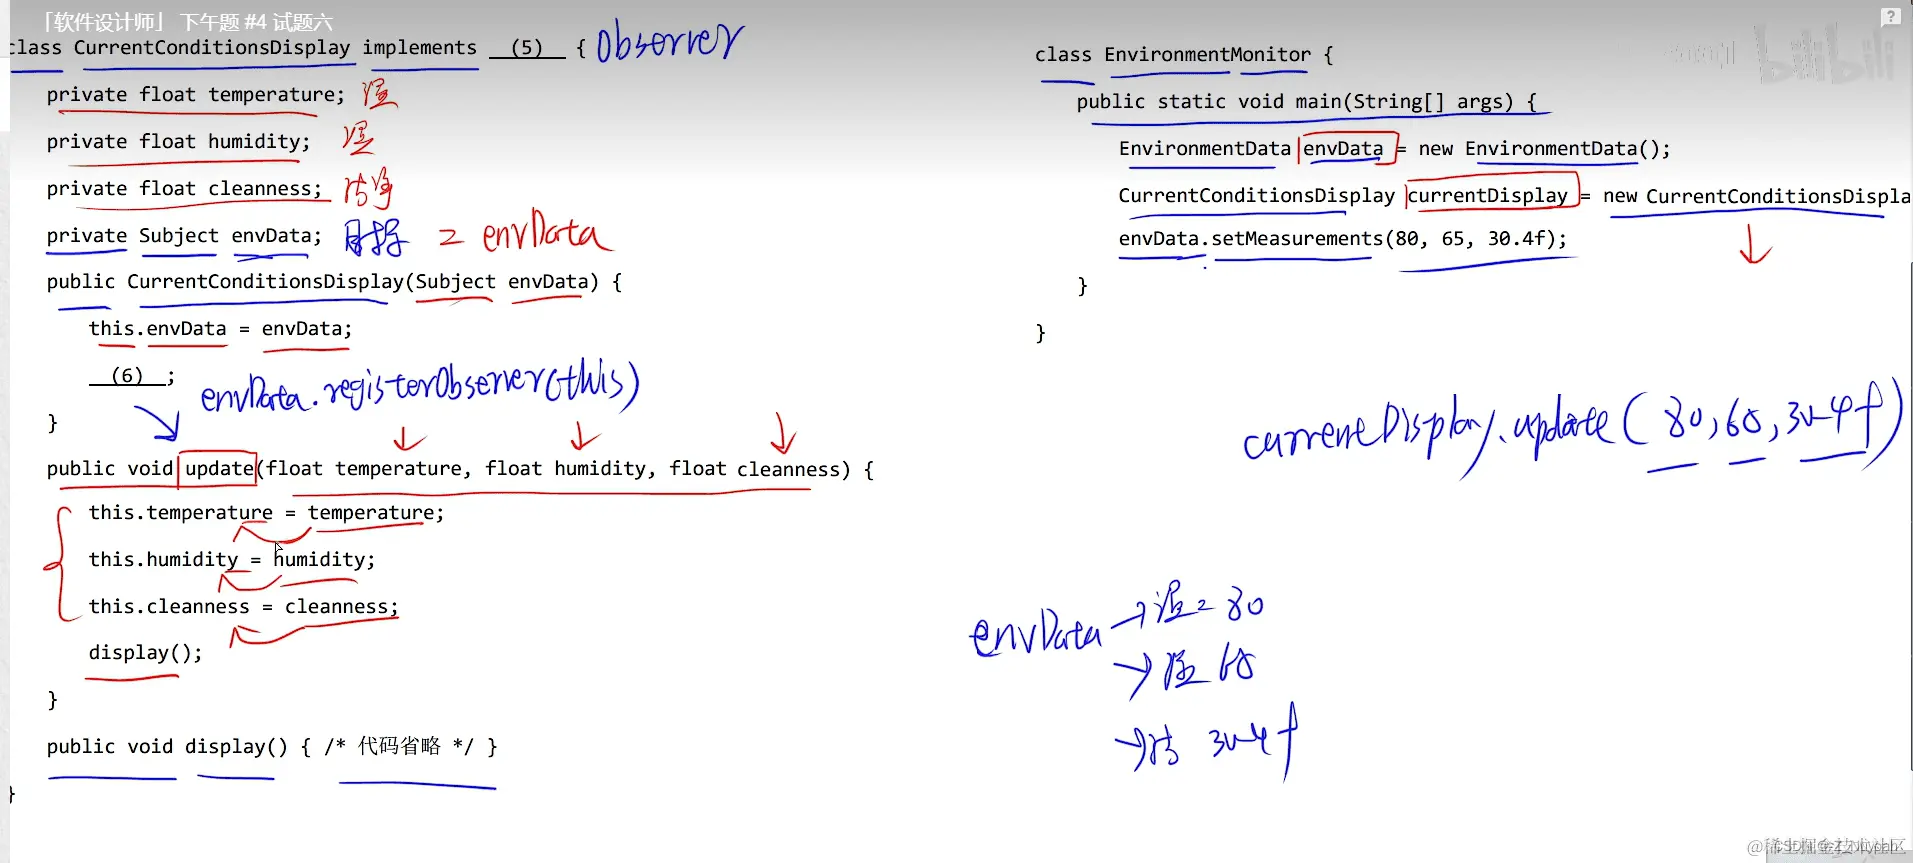 「软件设计师」 下午题 #4 试题六
class CurrentConditionsDisplay implements __(5)__ { Observer
private float temperature; 温
private float humidity; 湿
private float cleanness; 洁净
private Subject envData; 目标 = envData
public CurrentConditionsDisplay(Subject envData) {
this.envData = envData;
__(6)__;
envData.registerObserver(this)
}
public void update(float temperature, float humidity, float cleanness) {
this.temperature = temperature;
this.humidity = humidity;
this.cleanness = cleanness;
display();
}
public void display() { /* 代码省略 */ }
}
bilibili
class EnvironmentMonitor {
public static void main(String[] args) {
EnvironmentData envData = new EnvironmentData();
CurrentConditionsDisplay currentDisplay = new CurrentConditionsDispla
envData.setMeasurements(80, 65, 30.4f);
}
}
currentDisplay.update(80,65,30.4f)
envData → 温=80
→ 湿 65
→ 洁 30.4f
@稀土掘金技术社区